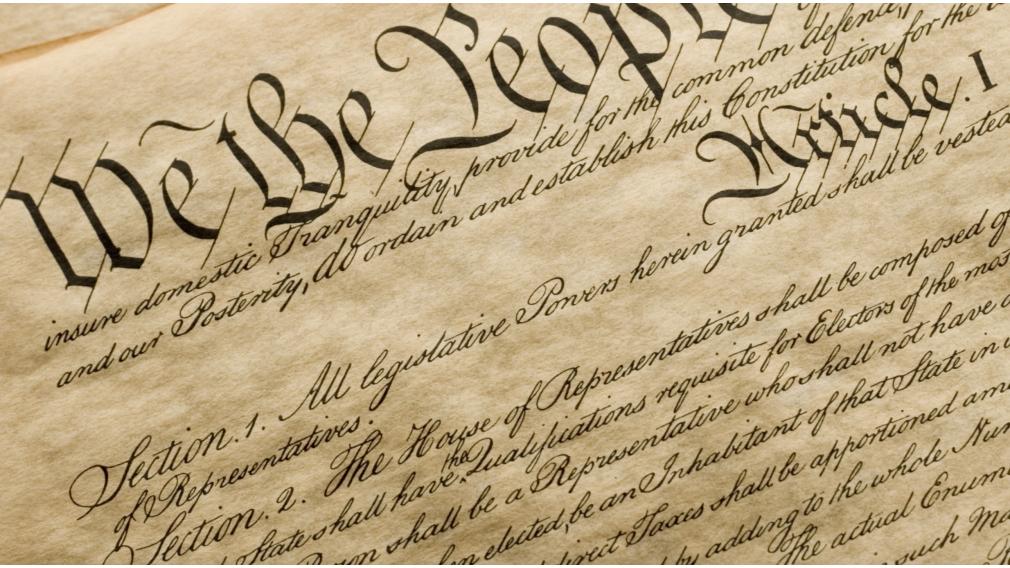 We the People
insure domestic Tranquility, provide for the common defence,
and our Posterity, do ordain and establish this Constitution for the
Article. I
Section. 1. All legislative Powers herein granted shall be vested
of Representatives.
Section. 2. The House of Representatives shall be composed of
State shall have the Qualifications requisite for Electors of the most
shall be a Representative who shall not have
elected, be an Inhabitant of that State in
direct Taxes shall be apportioned
by adding to the whole
The actual
such